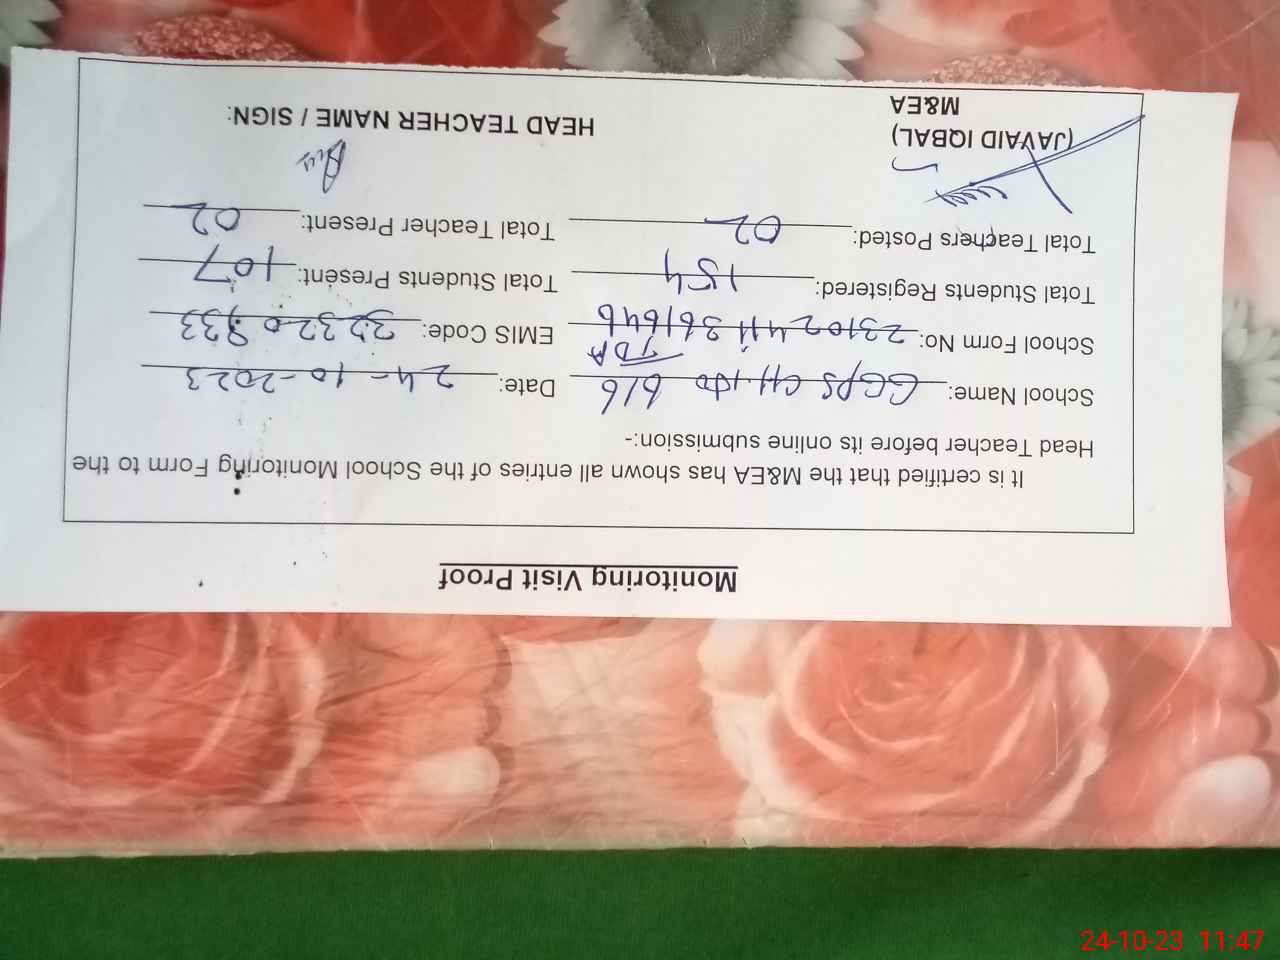 Monitoring Visit Proof
It is certified that the M&EA has shown all entries of the School Monitoring Form to the
Head Teacher before its online submission:-
School Name: GGPS CH. 100 6/6 TDA Date: 24-10-2023
School Form No: EMIS Code: 32320933
Total Students Registered: 154 Total Students Present: 107
Total Teachers Posted: 02 Total Teacher Present: 02
(JAVAID IQBAL) HEAD TEACHER NAME / SIGN:
M&EA
24-10-23 11:47